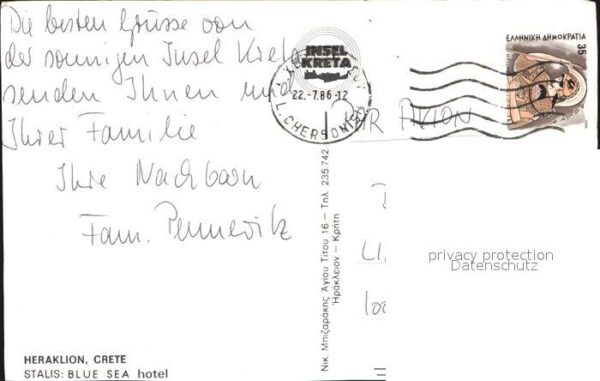 Die besten Grüsse von
der sonnigen Insel Kreta
senden Ihnen und
Ihrer Familie
Ihre Nachbarn
Fam. Pennewitz
INSEL
KRETA
22.-7.86-12
L. CHERSONISO
PAR AVION
ΕΛΛΗΝΙΚΗ ΔΗΜΟΚΡΑΤΙΑ
35
Νικ. Μπιζαράκης Αγίου Τίτου 16 — Τηλ. 235 742
Ηράκλειον — Κρήτη
privacy protection
Datenschutz
HERAKLION, CRETE
STALIS: BLUE SEA hotel